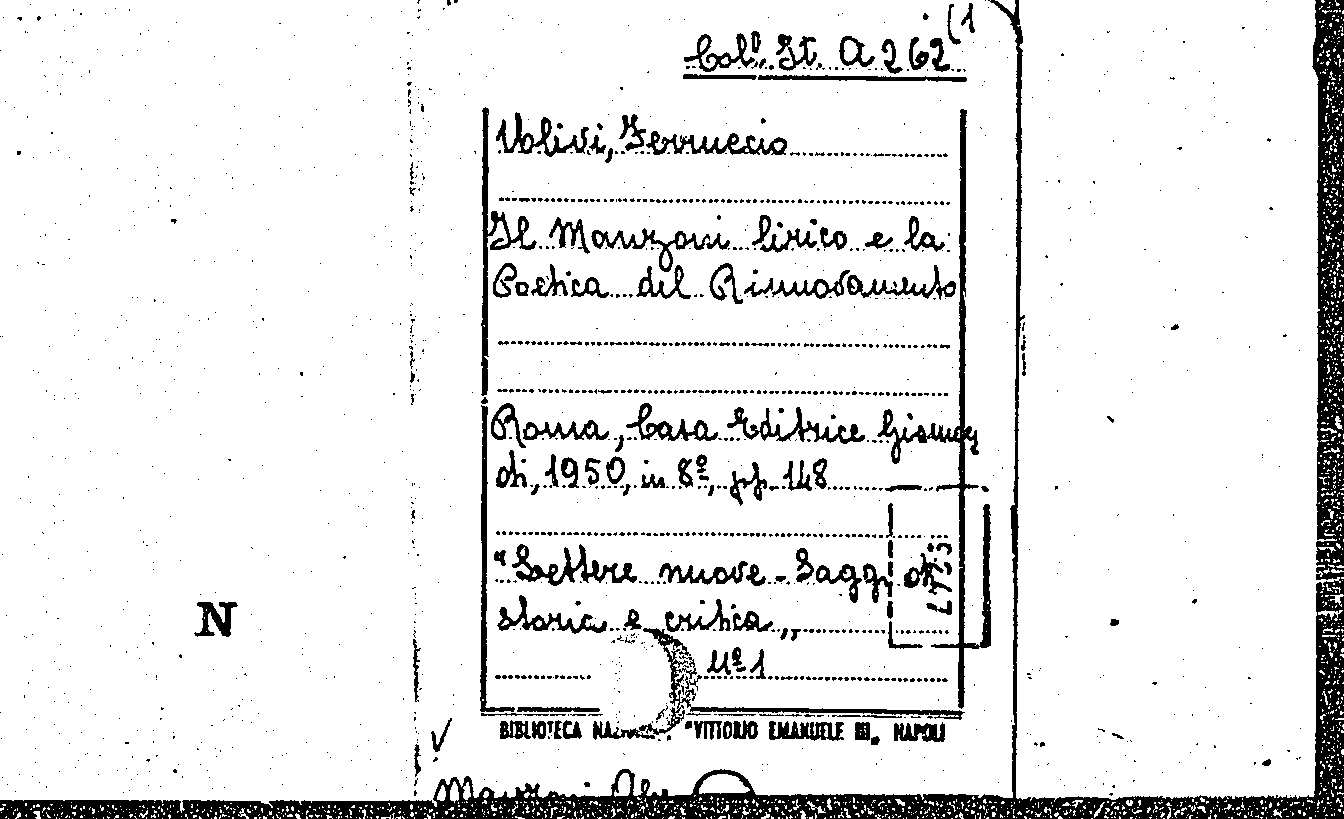 Col.ⁿᵉ It. A 262 (1
Ulivi, Ferruccio
Il Manzoni lirico e la
Poetica del Rinnovamento
Roma, Casa Editrice Gismon
di, 1950, in 8º, pp. 148
"Lettere nuove - Saggi di
storia e critica„
Nº 1
N
BIBLIOTECA "VITTORIO EMANUELE III„ NAPOLI
Manzoni